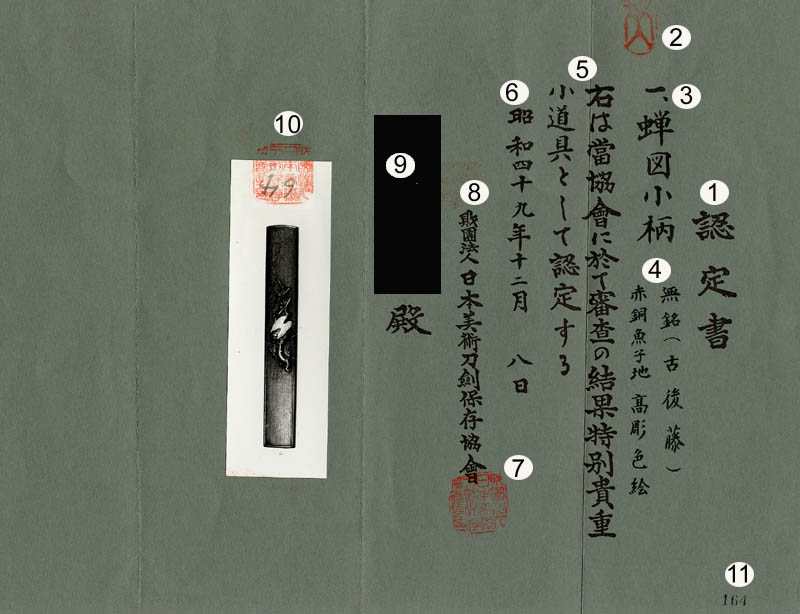 認定書
一、蝉図小柄
無銘(古後藤)
赤銅魚子地 高彫色絵
右は當協會に於て審査の結果特別貴重
小道具として認定する
昭和四十九年十二月 八日
財團法人日本美術刀剣保存協會
殿
164
1
2
3
4
5
6
7
8
9
10
11